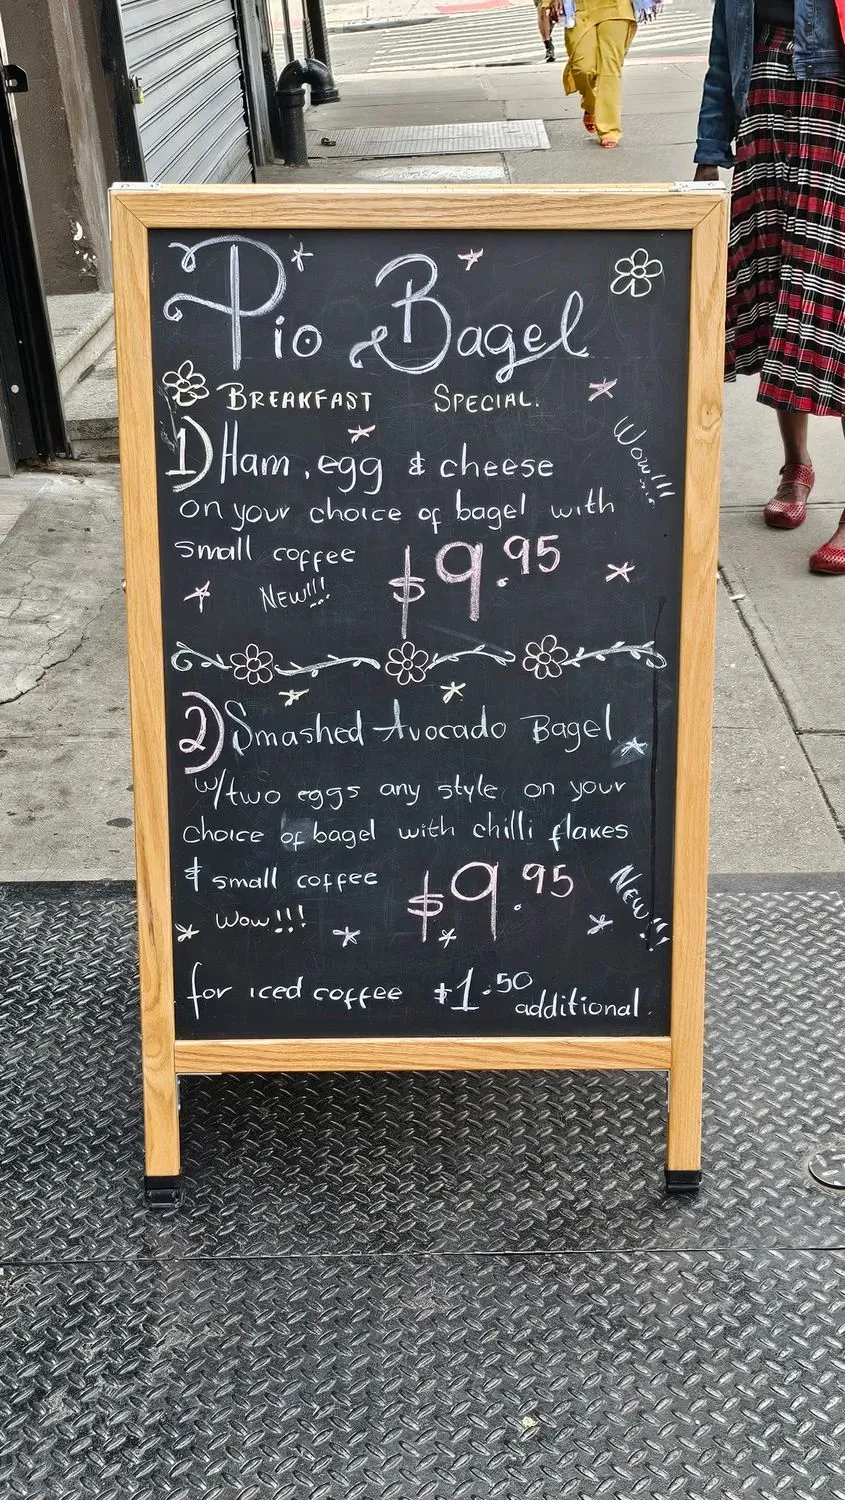 Pio Bagel
BREAKFAST SPECIAL.
1) Ham, egg & cheese
Wow!!!
on your choice of bagel with
small coffee $9.95
NEW!!!
2) Smashed Avocado Bagel
w/two eggs any style on your
choice of bagel with chilli flakes
& small coffee $9.95
Wow!!!
NEW!!
for iced coffee $1.50 additional.